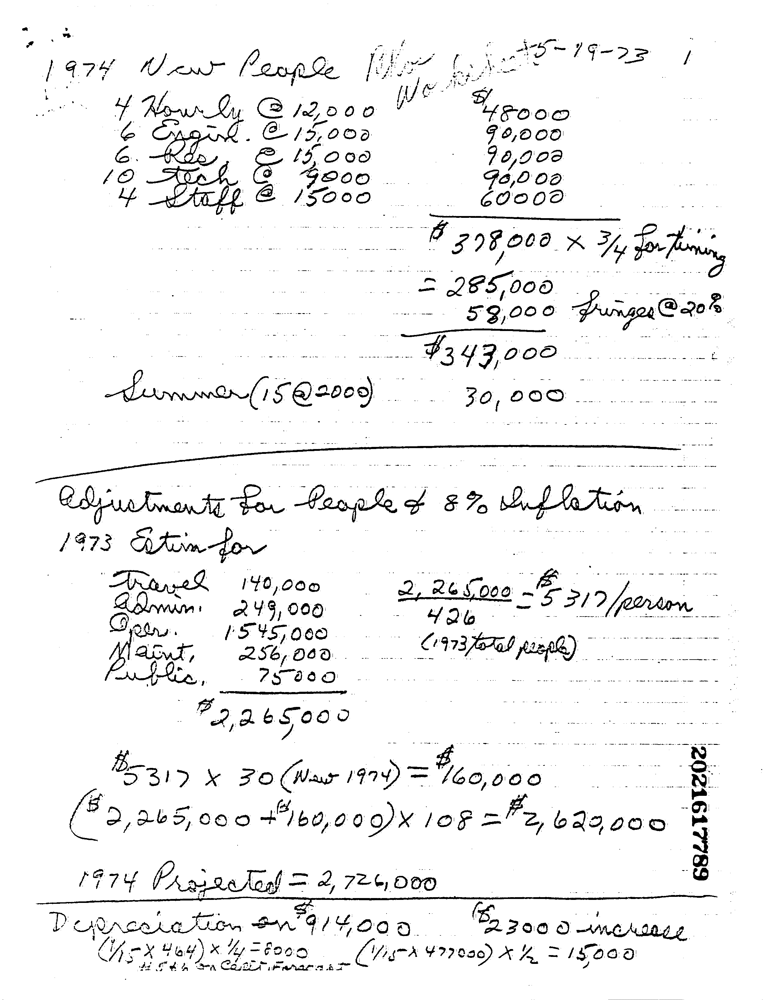 1974 New People Worksheet 5-19-73 1
4 Hourly @ 12,000 $48000
6 Engin. @ 15,000 90,000
6. Res, @ 15,000 90,000
10 tech @ 9000 90,000
4 Staff @ 15000 60000
$378,000 x 3/4 for timing
= 285,000
58,000 fringes @ 20%
$343,000
Summer (15@2000) 30,000
Adjustments for People & 8% Inflation
1973 Estim for
travel 140,000
Admin. 249,000
Oper. 1545,000
Maint, 256,000
Public. 75000
$2,265,000
2,265,000 / 426 = $5317/person
(1973 total people)
$5317 x 30 (New 1974) = $160,000
($2,265,000 + $160,000) x 108 = $2,620,000
1974 Projected = 2,726,000
Depreciation on $914,000 ($23000 increase
(1/15 x 464) x 1/4 = 8000 (1/15 x 477000) x 1/2 = 15,000
on Forecast
2021617789